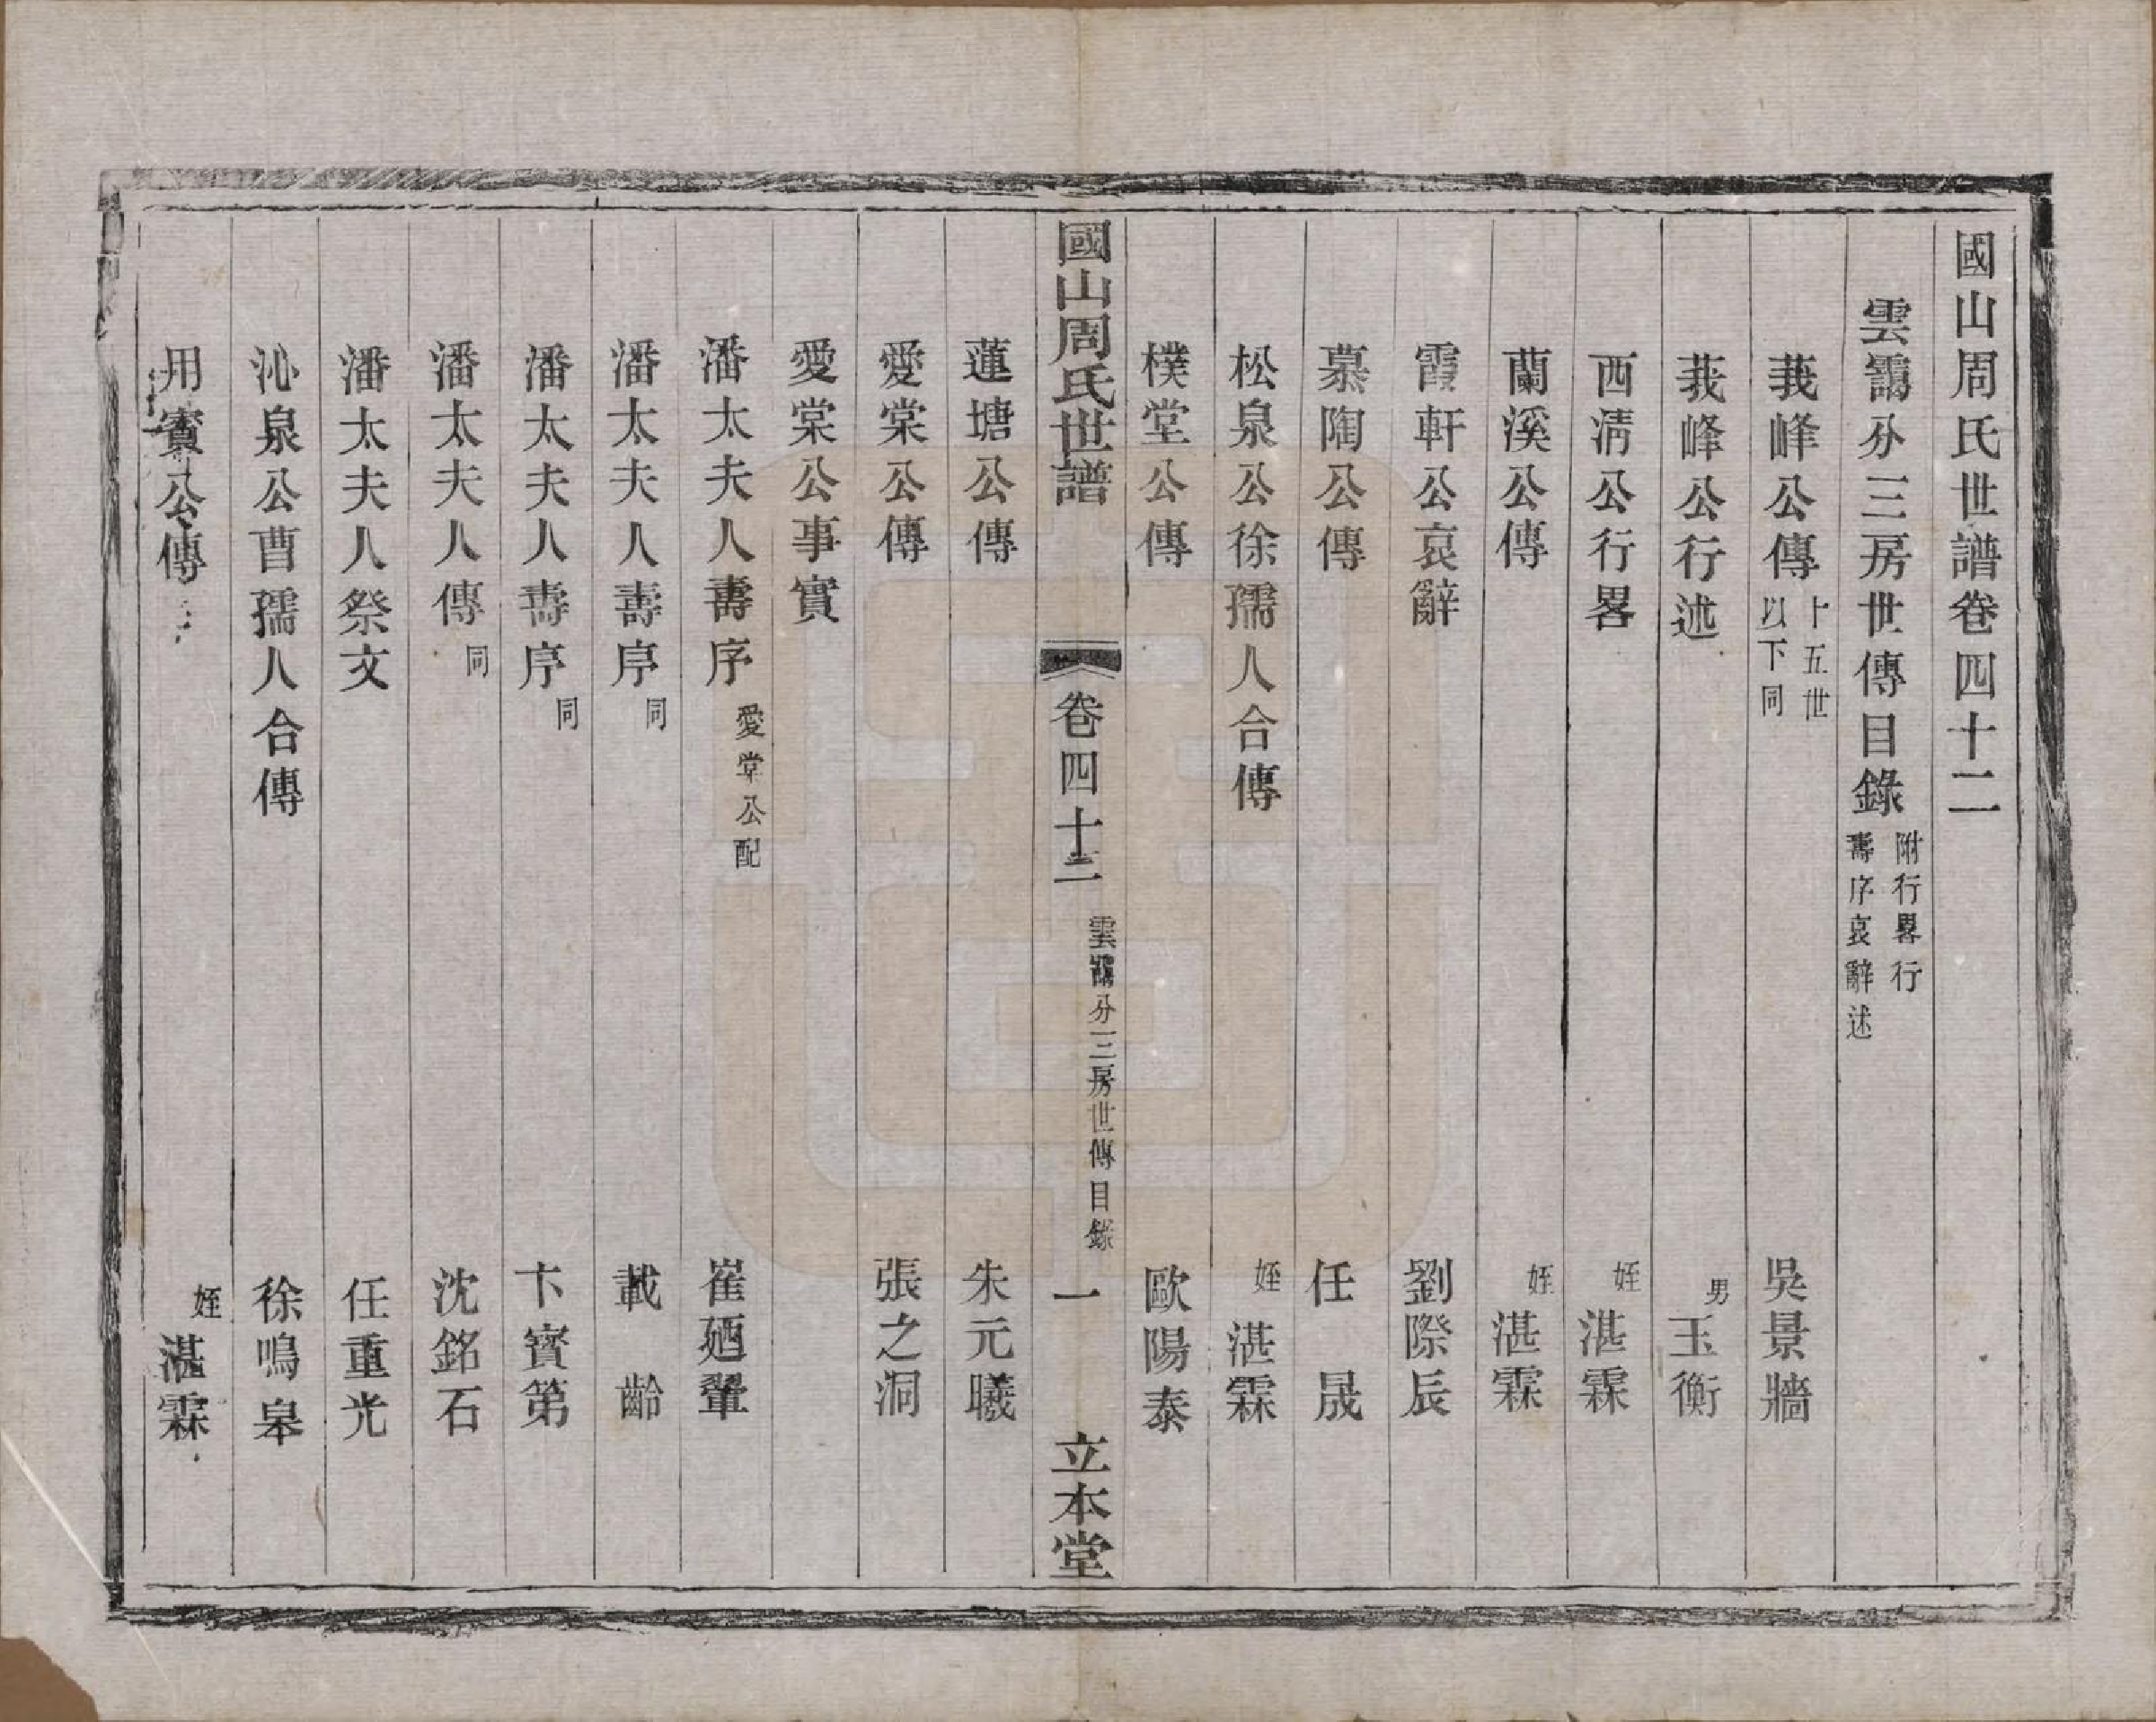 國山周氏世譜卷四十二
雲靄分三房世傳目錄 附行畧行述 壽序哀辭
莪峰公傳 十五世以下同 吳景牆
莪峰公行述 男 玉衡
西清公行畧 姪 湛霖
蘭溪公傳 姪 湛霖
霞軒公哀辭 劉際辰
慕陶公傳 任晟
松泉公徐孺人合傳 姪 湛霖
樸堂公傳 歐陽泰
國山周氏世譜 卷四十二 雲靄分三房世傳目錄 一 立本堂
蓮塘公傳 朱元曦
愛棠公傳 張之洞
愛棠公事實
潘太夫人壽序 愛棠公配 崔廼翬
潘太夫人壽序 同 載齡
潘太夫人壽序 同 卞寶第
潘太夫人傳 同 沈銘石
潘太夫人祭文 任重光
沁泉公曹孺人合傳 徐鳴皋
用賓公傳 姪 湛霖